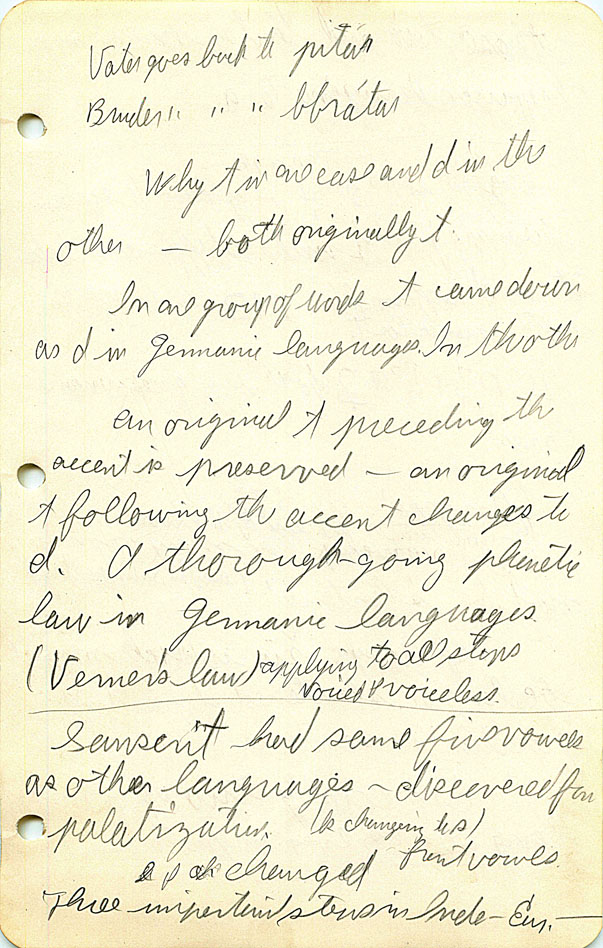 Vater goes back to pitár
Bruder " " " bhrátar
Why t in one case and d in the
other — both originally t.
In one group of words t came down
as d in Germanic languages. In the other
an original t preceding the
accent is preserved — an original
t following the accent changes to
d. A thorough-going phonetic
law in Germanic languages.
(Verner's law) applying to all stops
voiced & voiceless.
Sanscrit had same five vowels
as other languages — discovered from
palatization. (k changing to s)
changed front vowels.
Three important stems in Indo-Eur. —